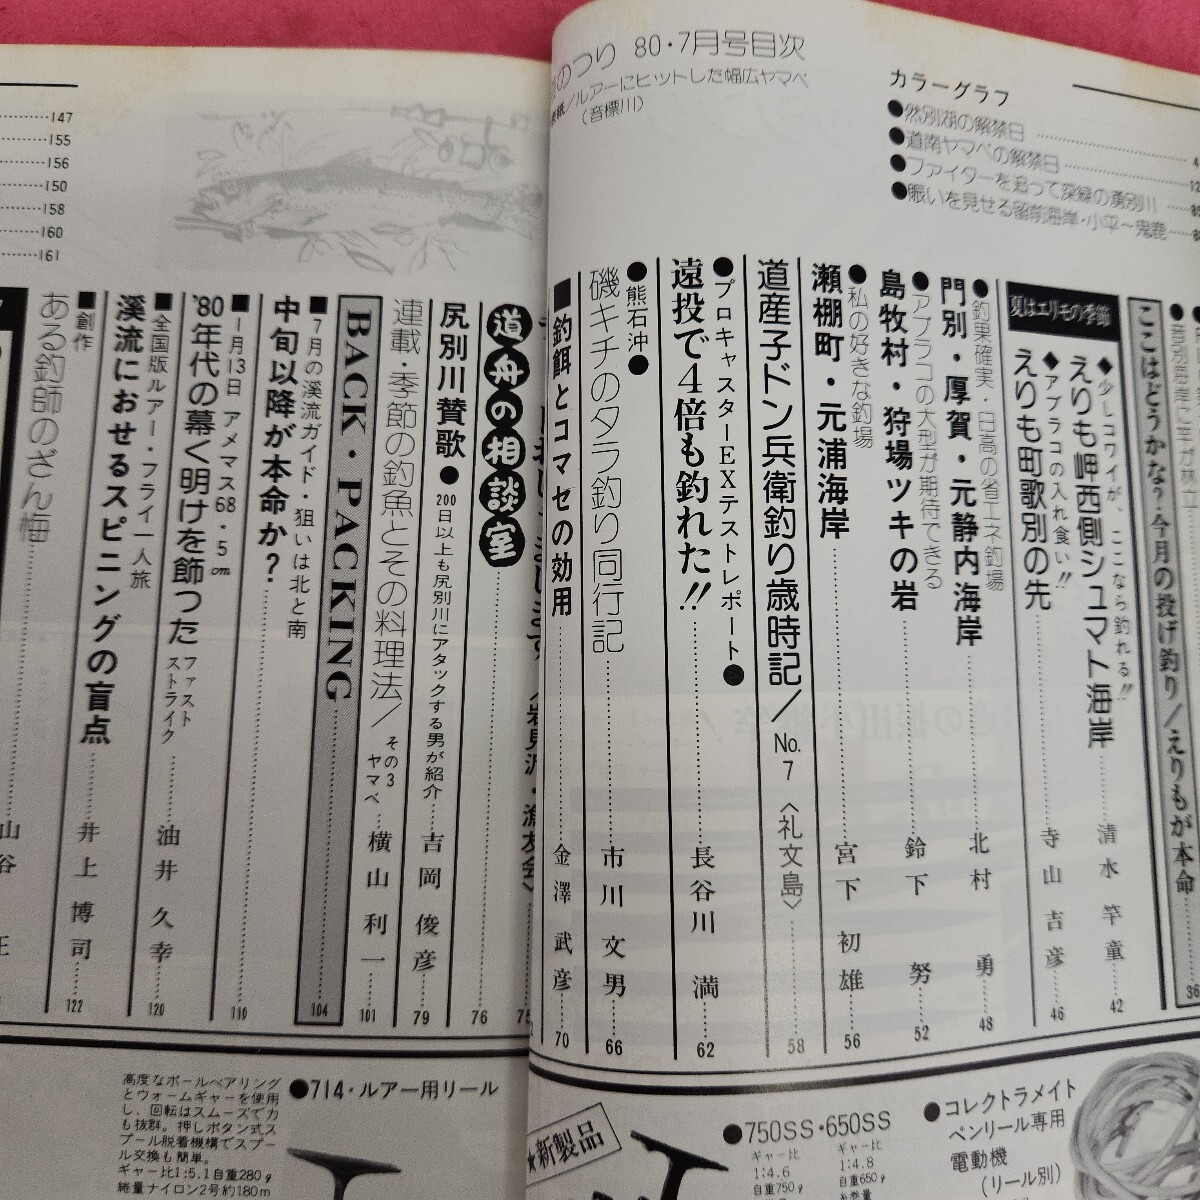 のつり 80・7月号目次
ルアーにヒットした幅広ヤマベ
（音標川）
カラーグラフ
●然別湖の解禁日 4
●道南ヤマベの解禁日
●ファイターを追って深緑の湧別川
●賑いを見せる留萌海岸・小平〜鬼鹿
ここはどうかな？・今月の投げ釣り／えりもが本命 36
夏はエリモの季節
◆少しコワイが、ここなら釣れる!!
えりも岬西側シュマト海岸 清水竿童 42
◆アブラコの入れ食い!!
えりも町歌別の先 寺山吉彦 46
●釣果確実・日高の省エネ釣場
門別・厚賀・元静内海岸 北村 勇 48
●アブラコの大型が期待できる
島牧村・狩場ツキの岩 鈴下 努 52
●私の好きな釣場
瀬棚町・元浦海岸 宮下初雄 56
道産子ドン兵衛釣り歳時記／No.7〈礼文島〉 58
●プロキャスターEXテストレポート●
遠投で4倍も釣れた!! 長谷川 満 62
●熊石沖●
磯キチのタラ釣り同行記 市川文男 66
■釣餌とコマセの効用 金澤武彦 70
道舟の相談室 76
尻別川賛歌●200日以上も尻別川にアタックする男が紹介 吉岡俊彦 79
連載・季節の釣魚とその料理法／その3 ヤマベ 横山利一 101
BACK・PACKING 104
■7月の渓流ガイド・狙いは北と南
中旬以降が本命か？ 110
■1月13日 アメマス68・5cm
'80年代の幕く明けを飾った ファストストライク 油井久幸 120
■全国版ルアー・フライ一人旅
溪流におせるスピニングの盲点 井上博司 122
■創作
ある釣師のざん悔 山谷 正
147
155
156
150
158
160
161
高度なボールベアリング
とウォームギャーを使用
し、回転はスムーズで力
も抜群。押しボタン式ス
プール脱着機構でスプー
ル交換も簡単。
ギャー比1:5.1自重280g
総量ナイロン2号約180m
●714・ルアー用リール
★新製品
●750SS・650SS
ギャー比
1:4.6
自重750g
ギャー比
1:4.8
自重650g
糸巻量
●コレクトラメイト
ペンリール専用
電動機
（リール別）